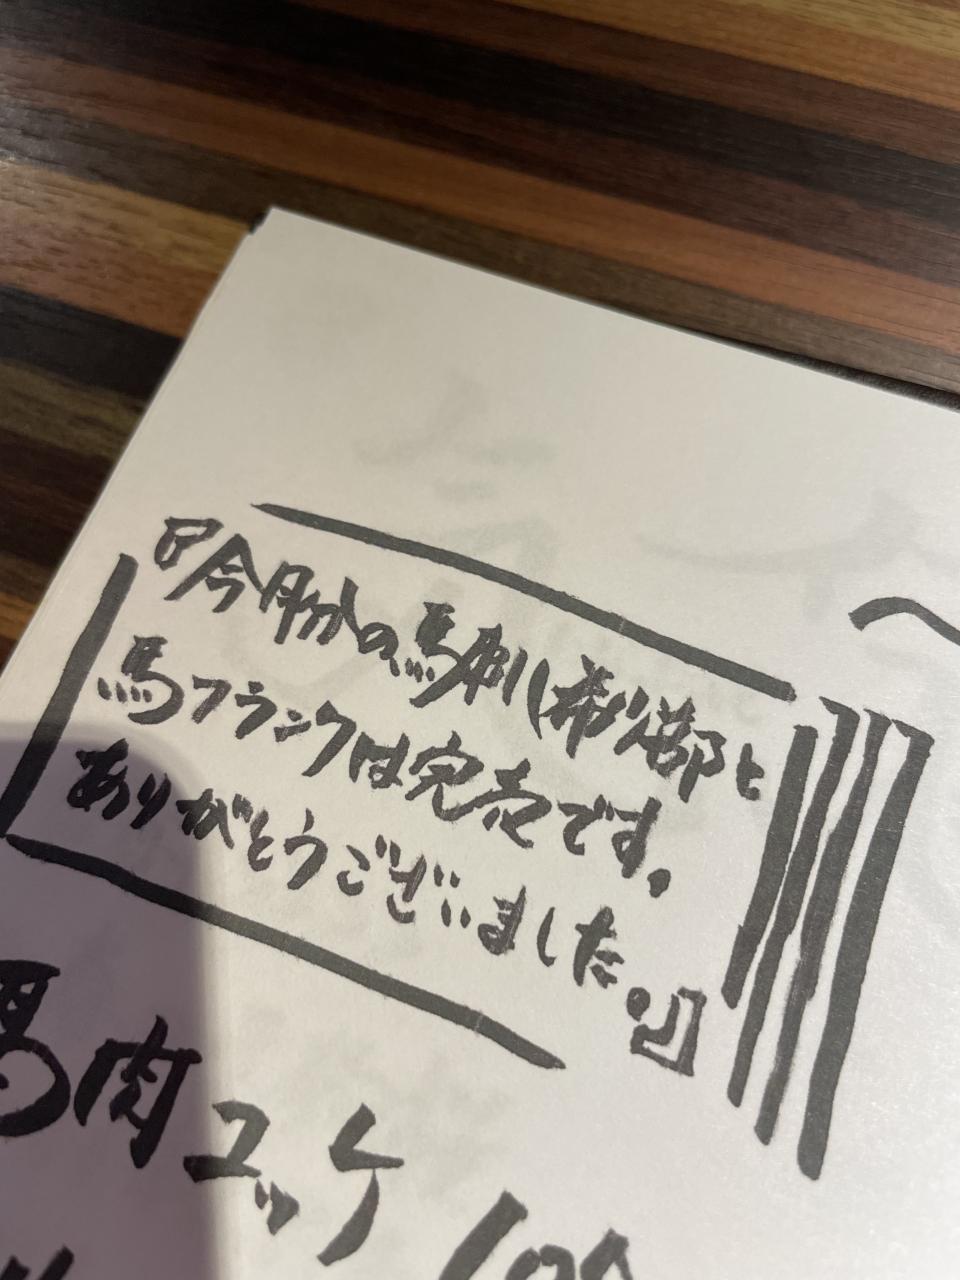 『今月分の馬刺し希少部と
馬フランクは完売です。
ありがとうございました。』
馬肉ユッケ